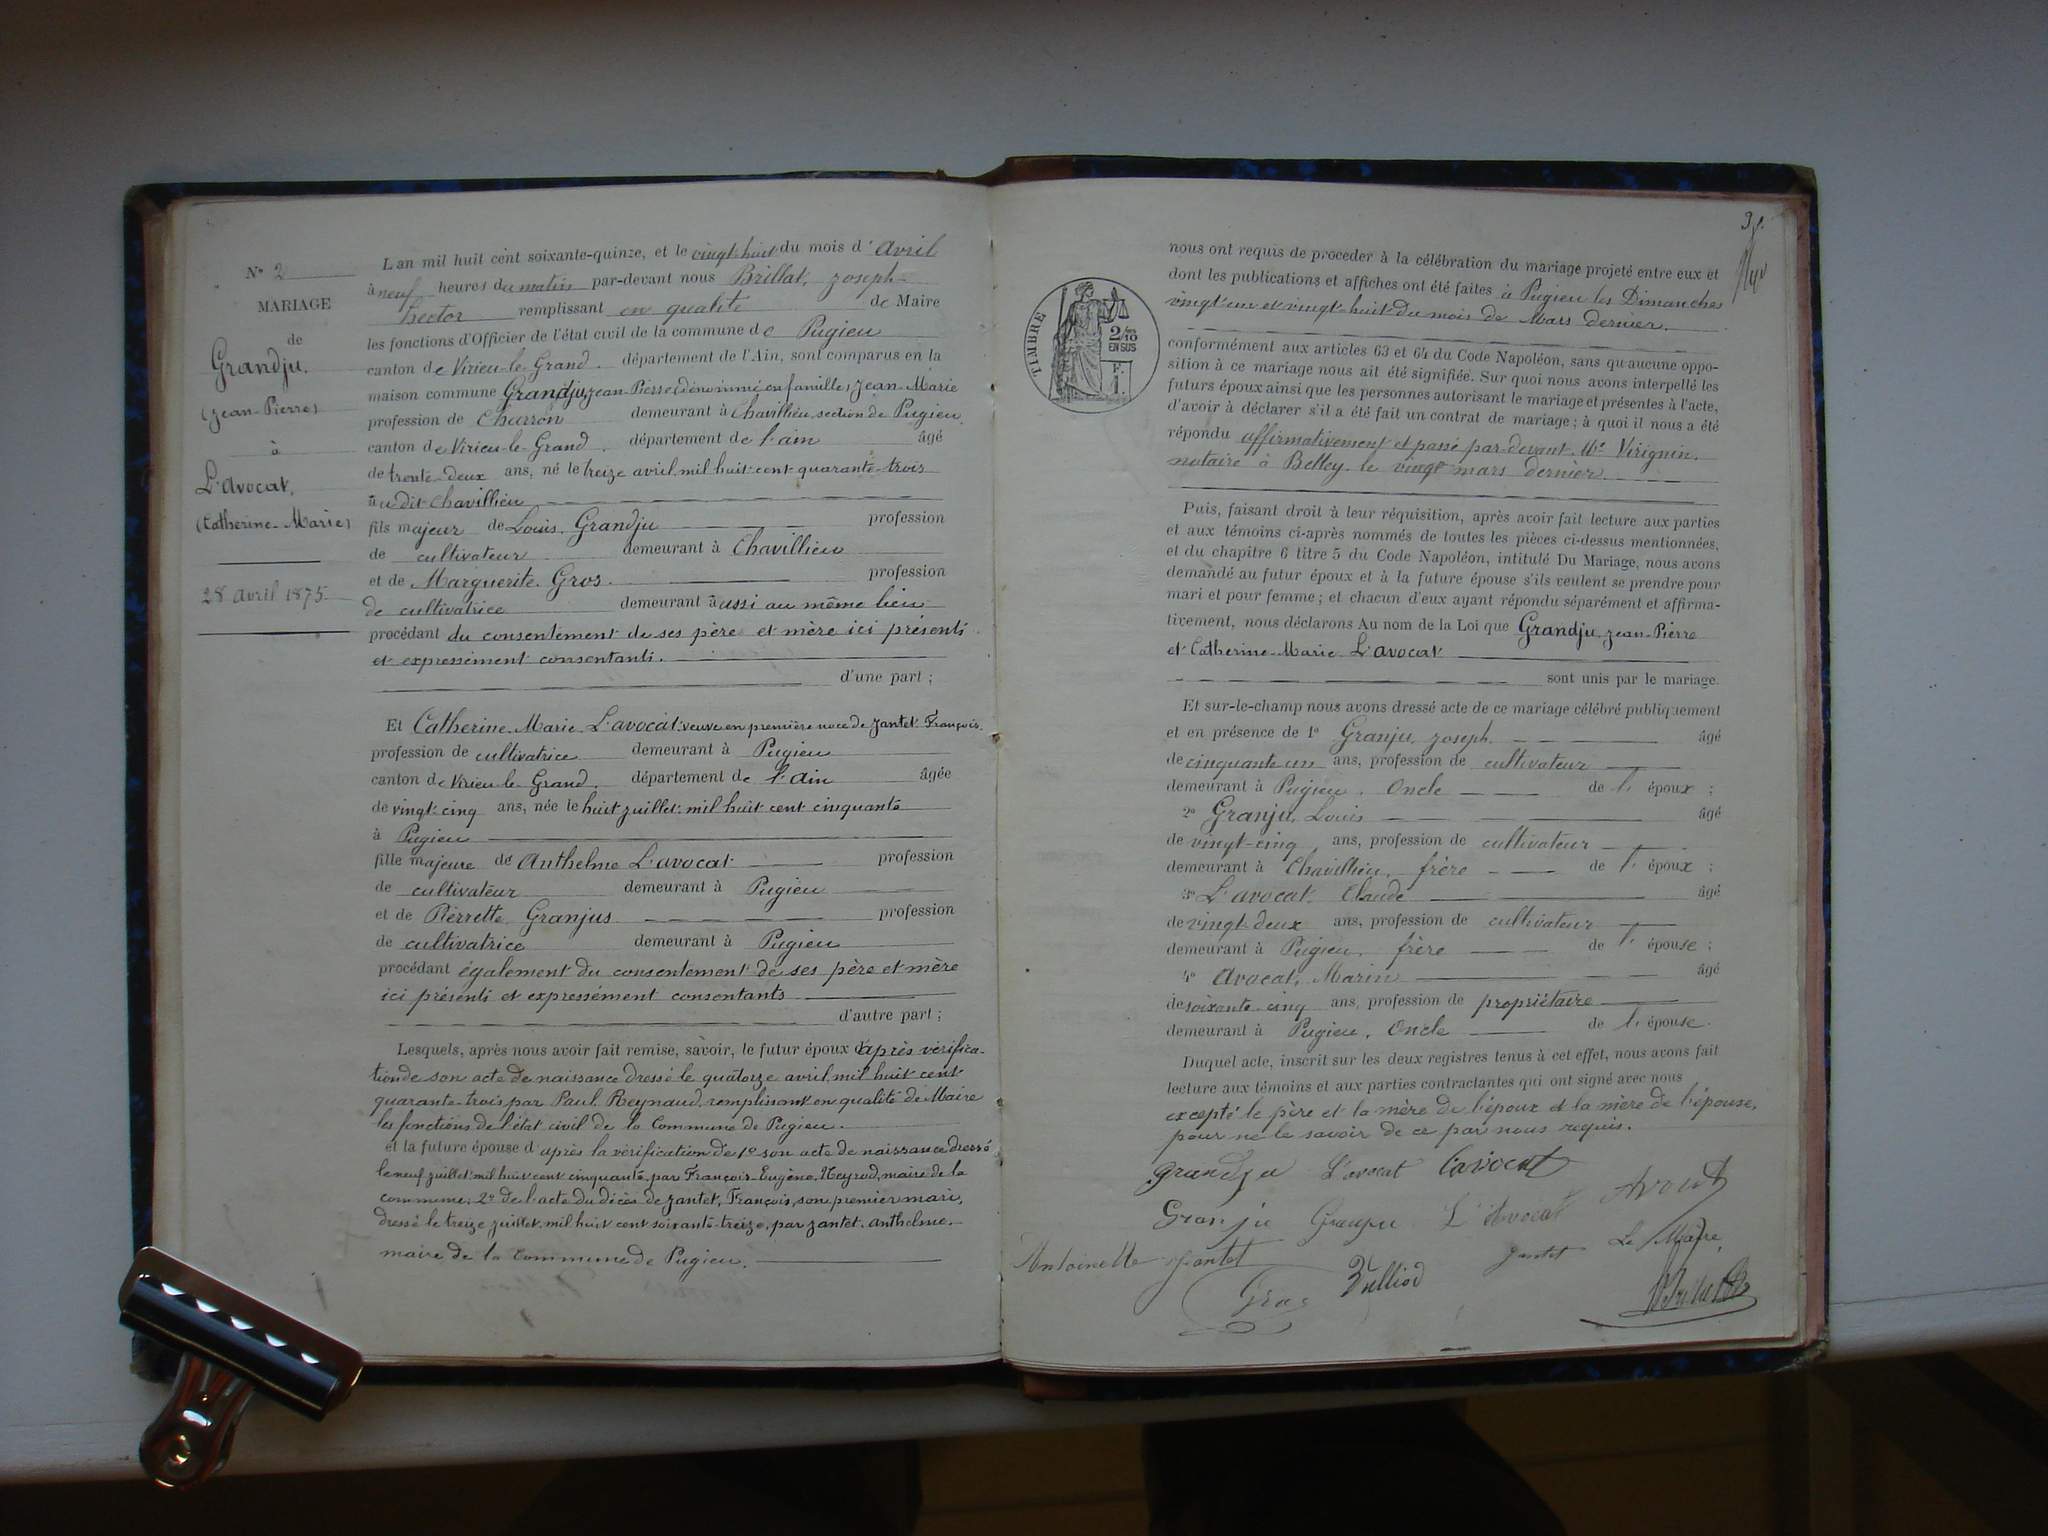 N° 2
MARIAGE
de
Grandju.
(Jean-Pierre)
à
L'avocat,
(Catherine-Marie)
28 avril 1875
L'an mil huit cent soixante-quinze, et le vingt-huit du mois d'Avril
à neuf heures du matin par-devant nous Brillat, Joseph-
hector remplissant en qualité de Maire
les fonctions d'Officier de l'état civil de la commune de Pugieu
canton de Virieu-le-Grand. département de l'Ain, sont comparus en la
maison commune Grandju, Jean-Pierre (dénommé en famille) Jean-Marie
profession de Charron demeurant à Chavillieu, section de Pugieu
canton de Virieu-le-Grand. département de l'ain âgé
de trente-deux ans, né le treize avril mil huit cent quarante-trois
audit Chavillieu
fils majeur de Louis Grandju profession
de cultivateur demeurant à Chavillieu
et de Marguerite Gros. profession
de cultivatrice demeurant aussi au même lieu
procédant du consentement de ses père et mère ici présents
et expressément consentants.
d'une part ;
Et Catherine-Marie L'avocat veuve en première noce de Jantet François.
profession de cultivatrice demeurant à Pugieu
canton de Virieu-le-Grand. département de l'ain âgée
de vingt-cinq ans, née le huit juillet mil huit cent cinquante
à Pugieu
fille majeure de Anthelme L'avocat profession
de cultivateur demeurant à Pugieu
et de Pierrette Granjus profession
de cultivatrice demeurant à Pugieu
procédant également du consentement de ses père et mère
ici présents et expressément consentants
d'autre part ;
Lesquels, après nous avoir fait remise, savoir, le futur époux d'après vérifica-
tion de son acte de naissance dressé le quatorze avril mil huit cent
quarante-trois par Paul Reynaud, remplissant en qualité de Maire
les fonctions de l'état civil de la Commune de Pugieu.
et la future épouse d'après la vérification de 1° son acte de naissance dressé
le neuf juillet mil huit cent cinquante, par François-Eugène, maire de la
commune; 2° de l'acte du décès de Jantet, François, son premier mari,
dressé le treize juillet mil huit cent soixante-treize, par Jantet Anthelme.
maire de la Commune de Pugieu.
3
TIMBRE
2/10
EN SUS
F.
1.
nous ont requis de procéder à la célébration du mariage projeté entre eux et
dont les publications et affiches ont été faites à Pugieu les Dimanches
vingt-un et vingt-huit du mois de Mars dernier.
conformément aux articles 63 et 64 du Code Napoléon, sans qu'aucune oppo-
sition à ce mariage nous ait été signifiée. Sur quoi nous avons interpellé les
futurs époux ainsi que les personnes autorisant le mariage et présentes à l'acte,
d'avoir à déclarer s'il a été fait un contrat de mariage ; à quoi il nous a été
répondu affirmativement et passé par-devant Me Virignin,
notaire à Belley le vingt mars dernier.
Puis, faisant droit à leur réquisition, après avoir fait lecture aux parties
et aux témoins ci-après nommés de toutes les pièces ci-dessus mentionnées,
et du chapitre 6 titre 5 du Code Napoléon, intitulé Du Mariage, nous avons
demandé au futur époux et à la future épouse s'ils veulent se prendre pour
mari et pour femme ; et chacun d'eux ayant répondu séparément et affirma-
tivement, nous déclarons Au nom de la Loi que Grandju, Jean-Pierre
et Catherine-Marie L'avocat
sont unis par le mariage.
Et sur-le-champ nous avons dressé acte de ce mariage célébré publiquement
et en présence de 1° Granju, Joseph. âgé
de cinquante un ans, profession de cultivateur
demeurant à Pugieu. Oncle de l' époux ;
2° Granju, Louis âgé
de vingt-cinq ans, profession de cultivateur
demeurant à Chavillieu, frère de l' époux ;
3° L'avocat, Claude âgé
de vingt-deux ans, profession de cultivateur
demeurant à Pugieu. frère de l' épouse ;
4° Avocat, Marin âgé
de soixante-cinq ans, profession de propriétaire
demeurant à Pugieu. Oncle de l' épouse.
Duquel acte, inscrit sur les deux registres tenus à cet effet, nous avons fait
lecture aux témoins et aux parties contractantes qui ont signé avec nous
excepté le père et la mère de l'époux et la mère de l'épouse,
pour ne le savoir de ce par nous requis.
grandju L'avocat Lavocat
Avocat
Granju Granju L'Avocat
Antoinette Jantet Jantet Le Maire,
Gros Tulliod
Brillat